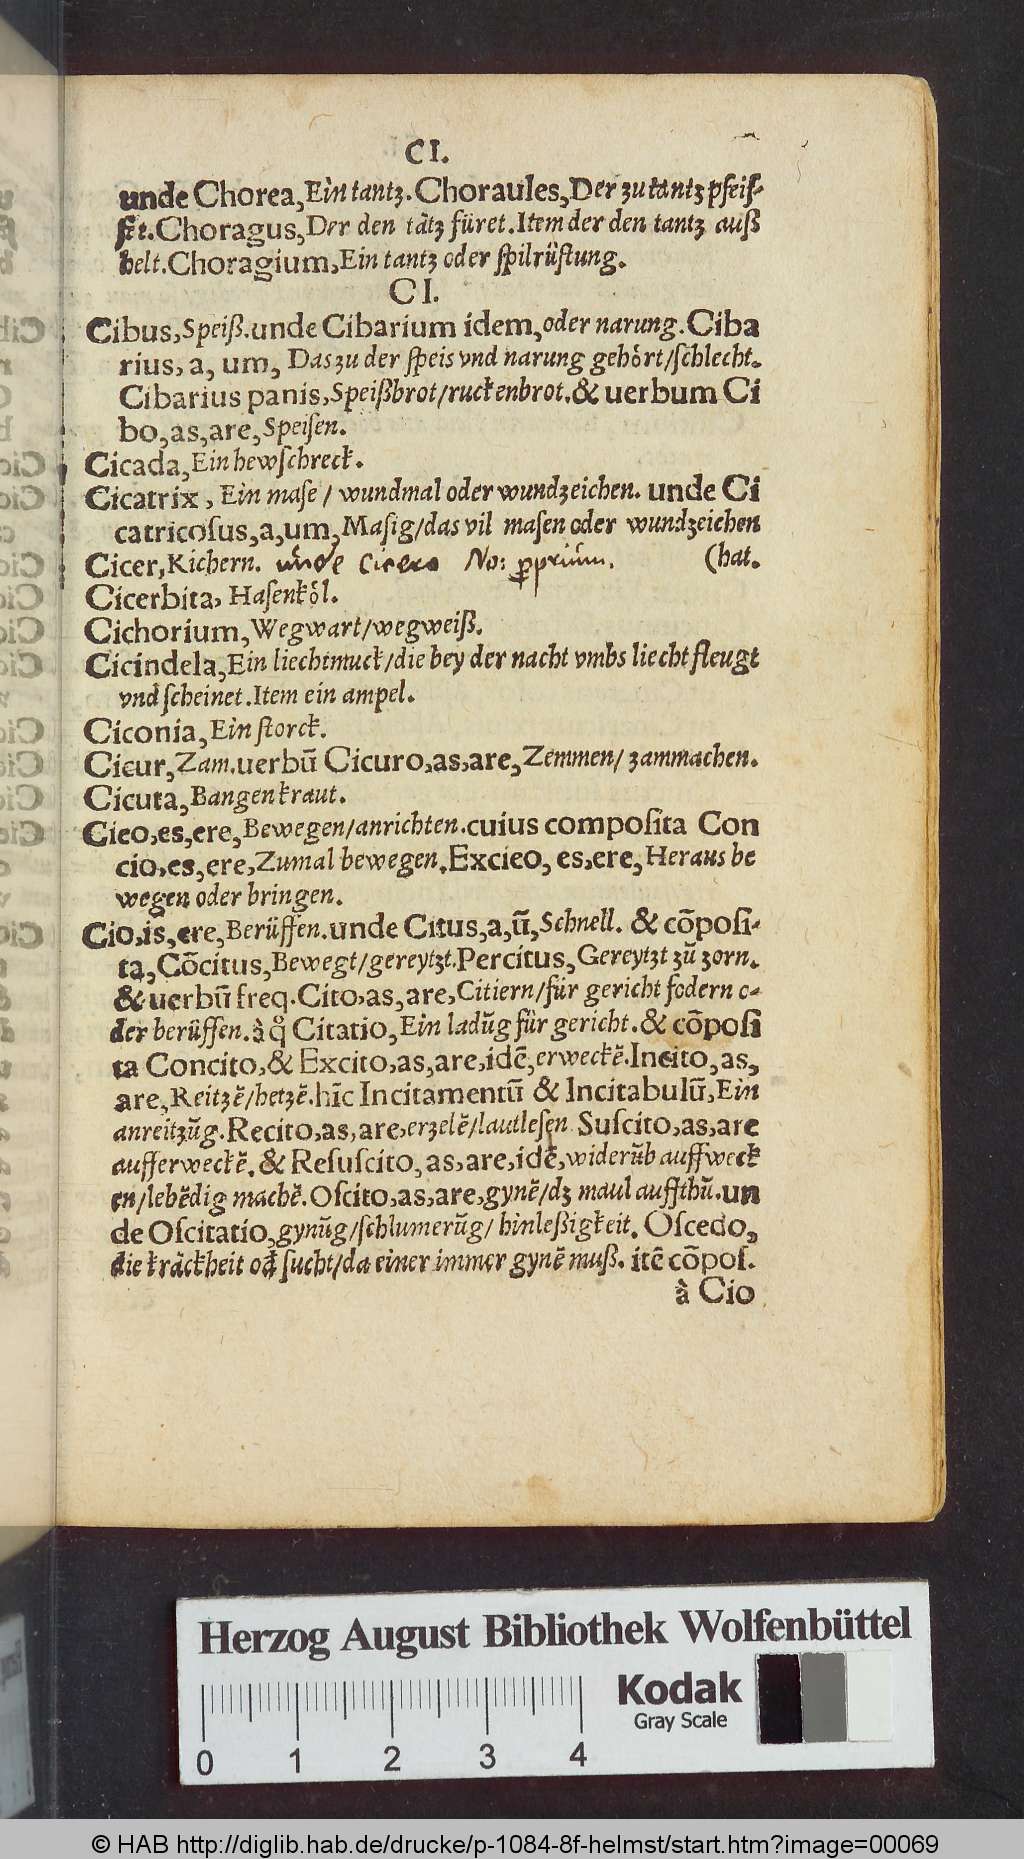 CI.
unde Chorea, Ein tantz. Choraules, Der zu tantz pfeif-
fet. Choragus, Der den tãtz füret. Item der den tantz auß
helt. Choragium, Ein tantz oder spilrüstung.
CI.
Cibus, Speiß. unde Cibarium idem, oder narung. Ciba
rius, a, um, Das zu der speis vnd narung gehört/schlecht.
Cibarius panis, Speißbrot/ruckenbrot. & uerbum Ci
bo, as, are, Speisen.
Cicada, Ein hewschreck.
Cicatrix, Ein mase / wundmal oder wundzeichen. unde Ci
catricosus, a, um, Masig/das vil masen oder wundzeichen
Cicer, Kichern. unde Cicero No: ꝓprium. (hat.
Cicerbita, Hasenköl.
Cichorium, Wegwart/wegweiß.
Cicindela, Ein liechtmuck/die bey der nacht vmbs liecht fleugt
vnd scheinet. Item ein ampel.
Ciconia, Ein storck.
Cicur, Zam. uerbũ Cicuro, as, are, Zemmen/ zammachen.
Cicuta, Bangenkraut.
Cieo, es, ere, Bewegen/anrichten. cuius composita Con
cio, es, ere, Zumal bewegen. Excieo, es, ere, Heraus be
wegen oder bringen.
Cio, is, ere, Berüffen. unde Citus, a, ũ, Schnell. & cõposi-
ta, Cõcitus, Bewegt/gereytzt. Percitus, Gereytzt zũ zorn.
& uerbũ freq. Cito, as, are, Citiern/für gericht fodern o-
der berüffen. à q̊ Citatio, Ein ladũg für gericht. & cõposi
ta Concito, & Excito, as, are, idẽ, erweckẽ. Incito, as,
are, Reitzẽ/hetzẽ. hĩc Incitamentũ & Incitabulũ, Ein
anreitzũg. Recito, as, are, erzelẽ/lautlesen. Suscito, as, are
aufferweckẽ. & Resuscito, as, are, idẽ, widerũb auffweck
en/lebẽdig machẽ. Oscito, as, are, gynẽ/dz maul auffthũ. un
de Oscitatio, gynũg/schlumerũg/ hinleßigkeit. Oscedo,
die krãckheit od̃ sucht/da einer immer gynẽ muß. itẽ cõpos.
à Cio
Herzog August Bibliothek Wolfenbüttel
Kodak
Gray Scale
0 1 2 3 4
© HAB http://diglib.hab.de/drucke/p-1084-8f-helmst/start.htm?image=00069